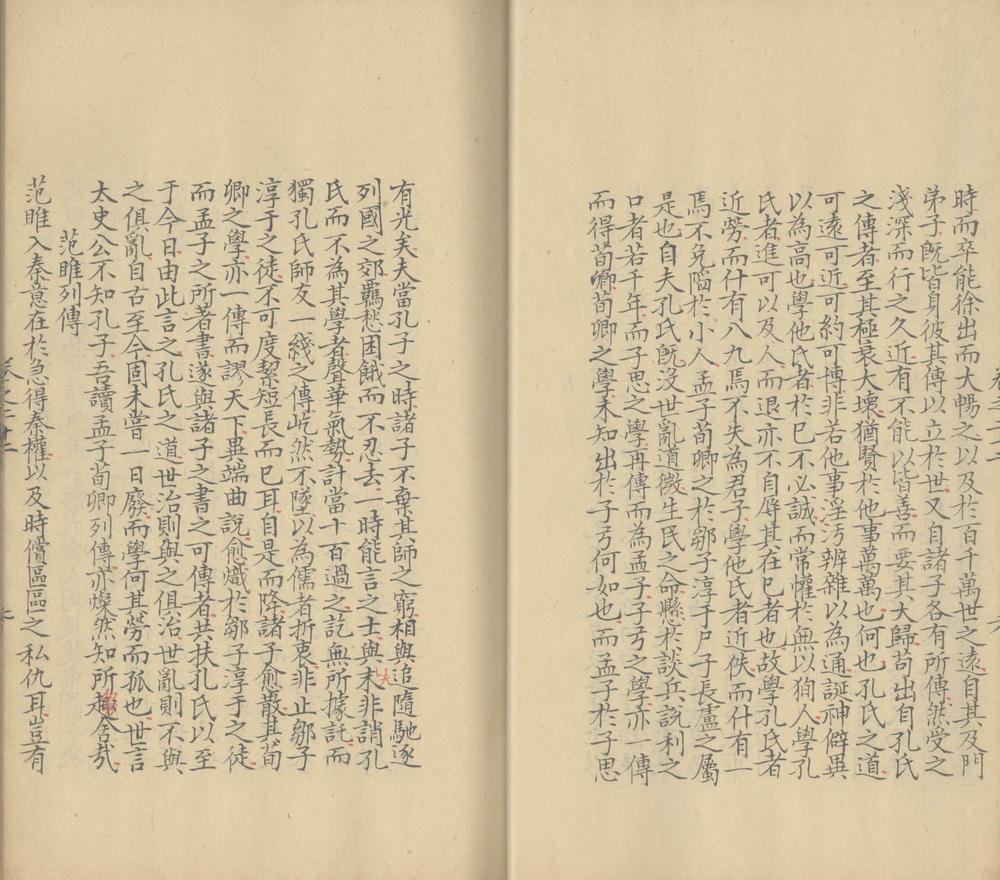 卷之二十二
時而卒能徐出而大暢之以及於百千萬世之遠自其及門
弟子既皆身彼其傳以立於世又自諸子各有所傳然受之
淺深而行之久近有不能以皆善而要其大歸苟出自孔氏
之傳者至其極衰大壞猶賢於他事萬萬也何也孔氏之道
可遠可近可約可博非若他事淫汚辨雜以為通誕神僻異
以為高也學他氏者於已不必誠而常懽於無以狥人學孔
氏者進可以及人而退亦不自辱其在已者也故學孔氏者
近勞而什有八九焉不失為君子學他氏者近佚而什有一
焉不免陷於小人孟子荀卿之於鄒子淳于尸子長盧之屬
是也自夫孔氏既没世亂道微生民之命懸於談兵說利之
口者若千年而子思之學再傳而為孟子子弓之學亦一傳
而得荀卿荀卿之學未知出於子弓何如也而孟子於子思
有光矣夫當孔子之時諸子不棄其師之窮相與追隨馳逐
列國之郊羈愁困餓而不忍去一時能言之士與夫非誚孔
氏而不為其學者聲華氣勢計當十百過之訖無所據託而
獨孔氏師友一綫之傳屹然不墜以為儒者折衷非止鄒子
淳于之徒不可度絜短長而已耳自是而降諸子愈散其荀
卿之學亦一傳而謬天下異端曲說愈熾於鄒子淳于之徒
而孟子之所著書遂與諸子之書之可傳者共扶孔氏以至
于今日由此言之孔氏之道世治則與之俱治世亂則不與
之俱亂自古至今固未嘗一日廢而學何其勞而孤也世言
太史公不知孔子吾讀孟子荀卿列傳亦燦然知所趨舍哉
范睢列傳
范睢入秦意在於急得秦權以及時償區區之私仇耳豈有
卷之二十二